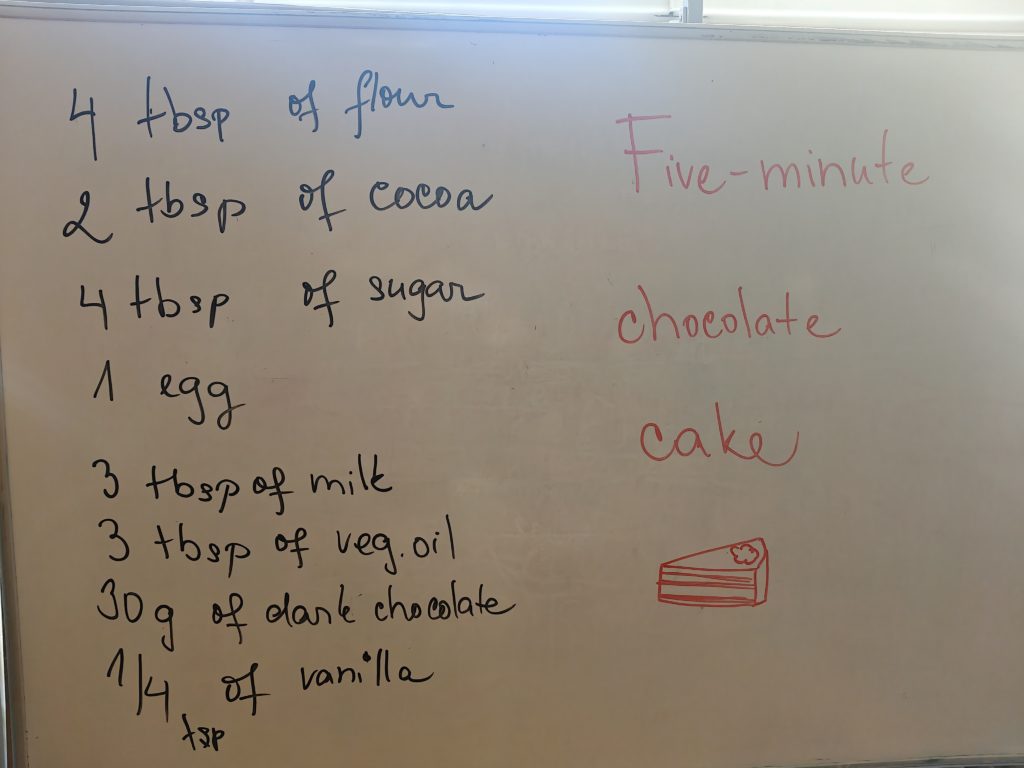 4 tbsp of flour
2 tbsp of cocoa
4 tbsp of sugar
1 egg
3 tbsp of milk
3 tbsp of veg. oil
30g of dark chocolate
1/4 tsp of vanilla
Five-minute
chocolate
cake